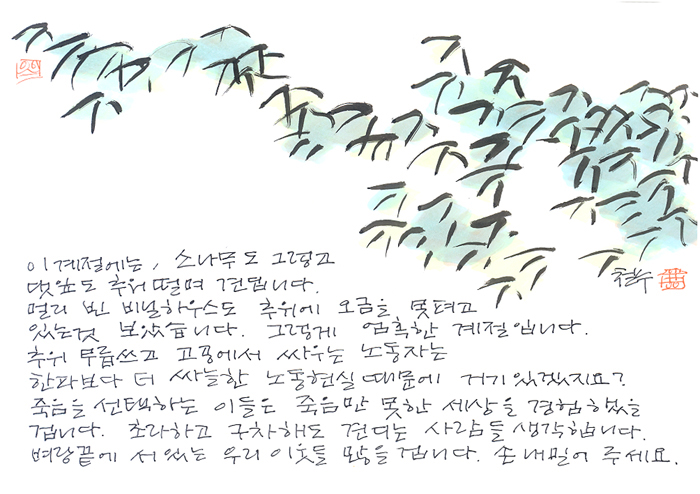 이 계절에는, 소나무도 그렇고
댓잎도 추워 떨며 견딥니다.
멀리 빈 비닐하우스도 추위에 오금을 못펴고
있는것 보았습니다. 그렇게 엄혹한 계절입니다.
추위 무릅쓰고 고공에서 싸우는 노동자는
한파보다 더 싸늘한 노동현실 때문에 거기 있겠지요?
죽음을 선택하는 이들은 죽음만 못한 세상을 경험했을
겁니다. 초라하고 구차해도 견디는 사람들 생각합니다.
벼랑끝에 서 있는 우리 이웃들 많을 겁니다. 손 내밀어 주세요.
철수